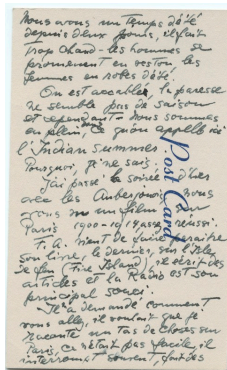 Nous avons un temps d'été
depuis deux jours, il fait
trop chaud - les hommes se
promènent en veston les
femmes en robes d'été.
On est accablée, la paresse
ne semble pas de saison
et cependant - Nous sommes
en plein, ce qu'on appelle ici
l'Indian Summer
Pourquoi, je ne sais.
J'ai passé la soirée d'hier
avec les Auberjonois. Nous
avons vu un film sur
Paris 1900-1914 assez réussi.
F. A. vient de faire paraître
son livre, le dernier, sur l'Ile
de feu (Fire Island), il écrit des
articles et la Radio est son
principal souci.
Il a demandé comment
vous allez, il voulait que je
raconte un tas de choses sur
Paris, ce n'était pas facile, il
interromt souvent, fait des
Post Card